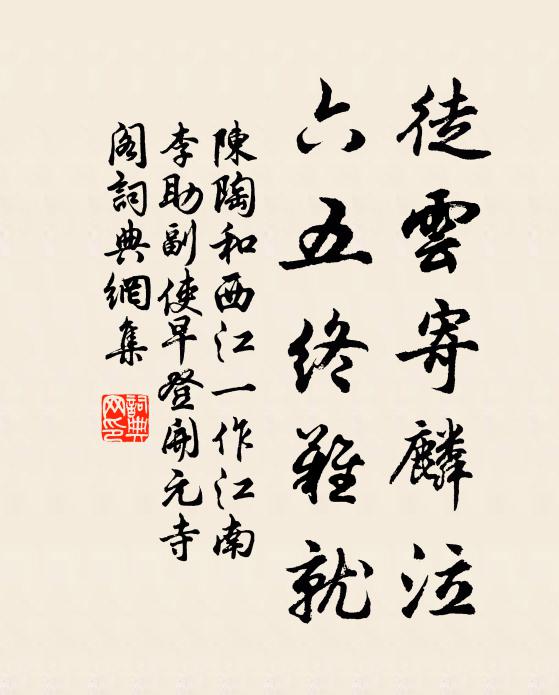 徒雲寄麟泣
六五終難就
陳陶和西江一作江南
李助副使早登開元寺
閣詞典網集
詞典网印